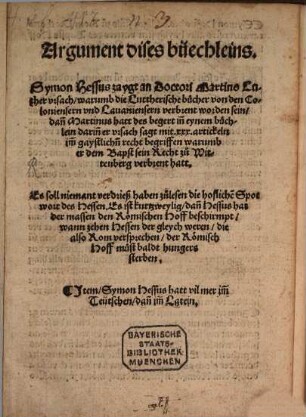 Argument dises biechleins.
Symon Hessus zaygt an Doctori Martino Lu
ther vrsach/ warumb die Lutherische bücher von den Co
loniensern vnd Louaniensern verbrent worden sein/
dañ Martinus hatt des begert in eynem büch
lein darin er vrsach sagt mit .xxx. artickeln
im gaystlichñ recht begriffen warumb
er dem Bapst sein Recht zů Wit
tenberg verbrent hatt.
Es soll niemant verdrieß haben zůlesen die hoflichē Spot
wort des Hessen. Es ist kurtzweylig/ dañ Hessus hat
der massen den Römischen Hoff beschirmpt/
wann zehen Hessen der gleych weren/ die
also Rom versprechen/ der Römisch
Hoff můst baldt hungers
sterben.
Item/ Symon Hessus hatt vil mer im
Teütschen/ dañ im Latein.
BAYERISCHE
STAATS-
BIBLIOTHEK
MUENCHEN